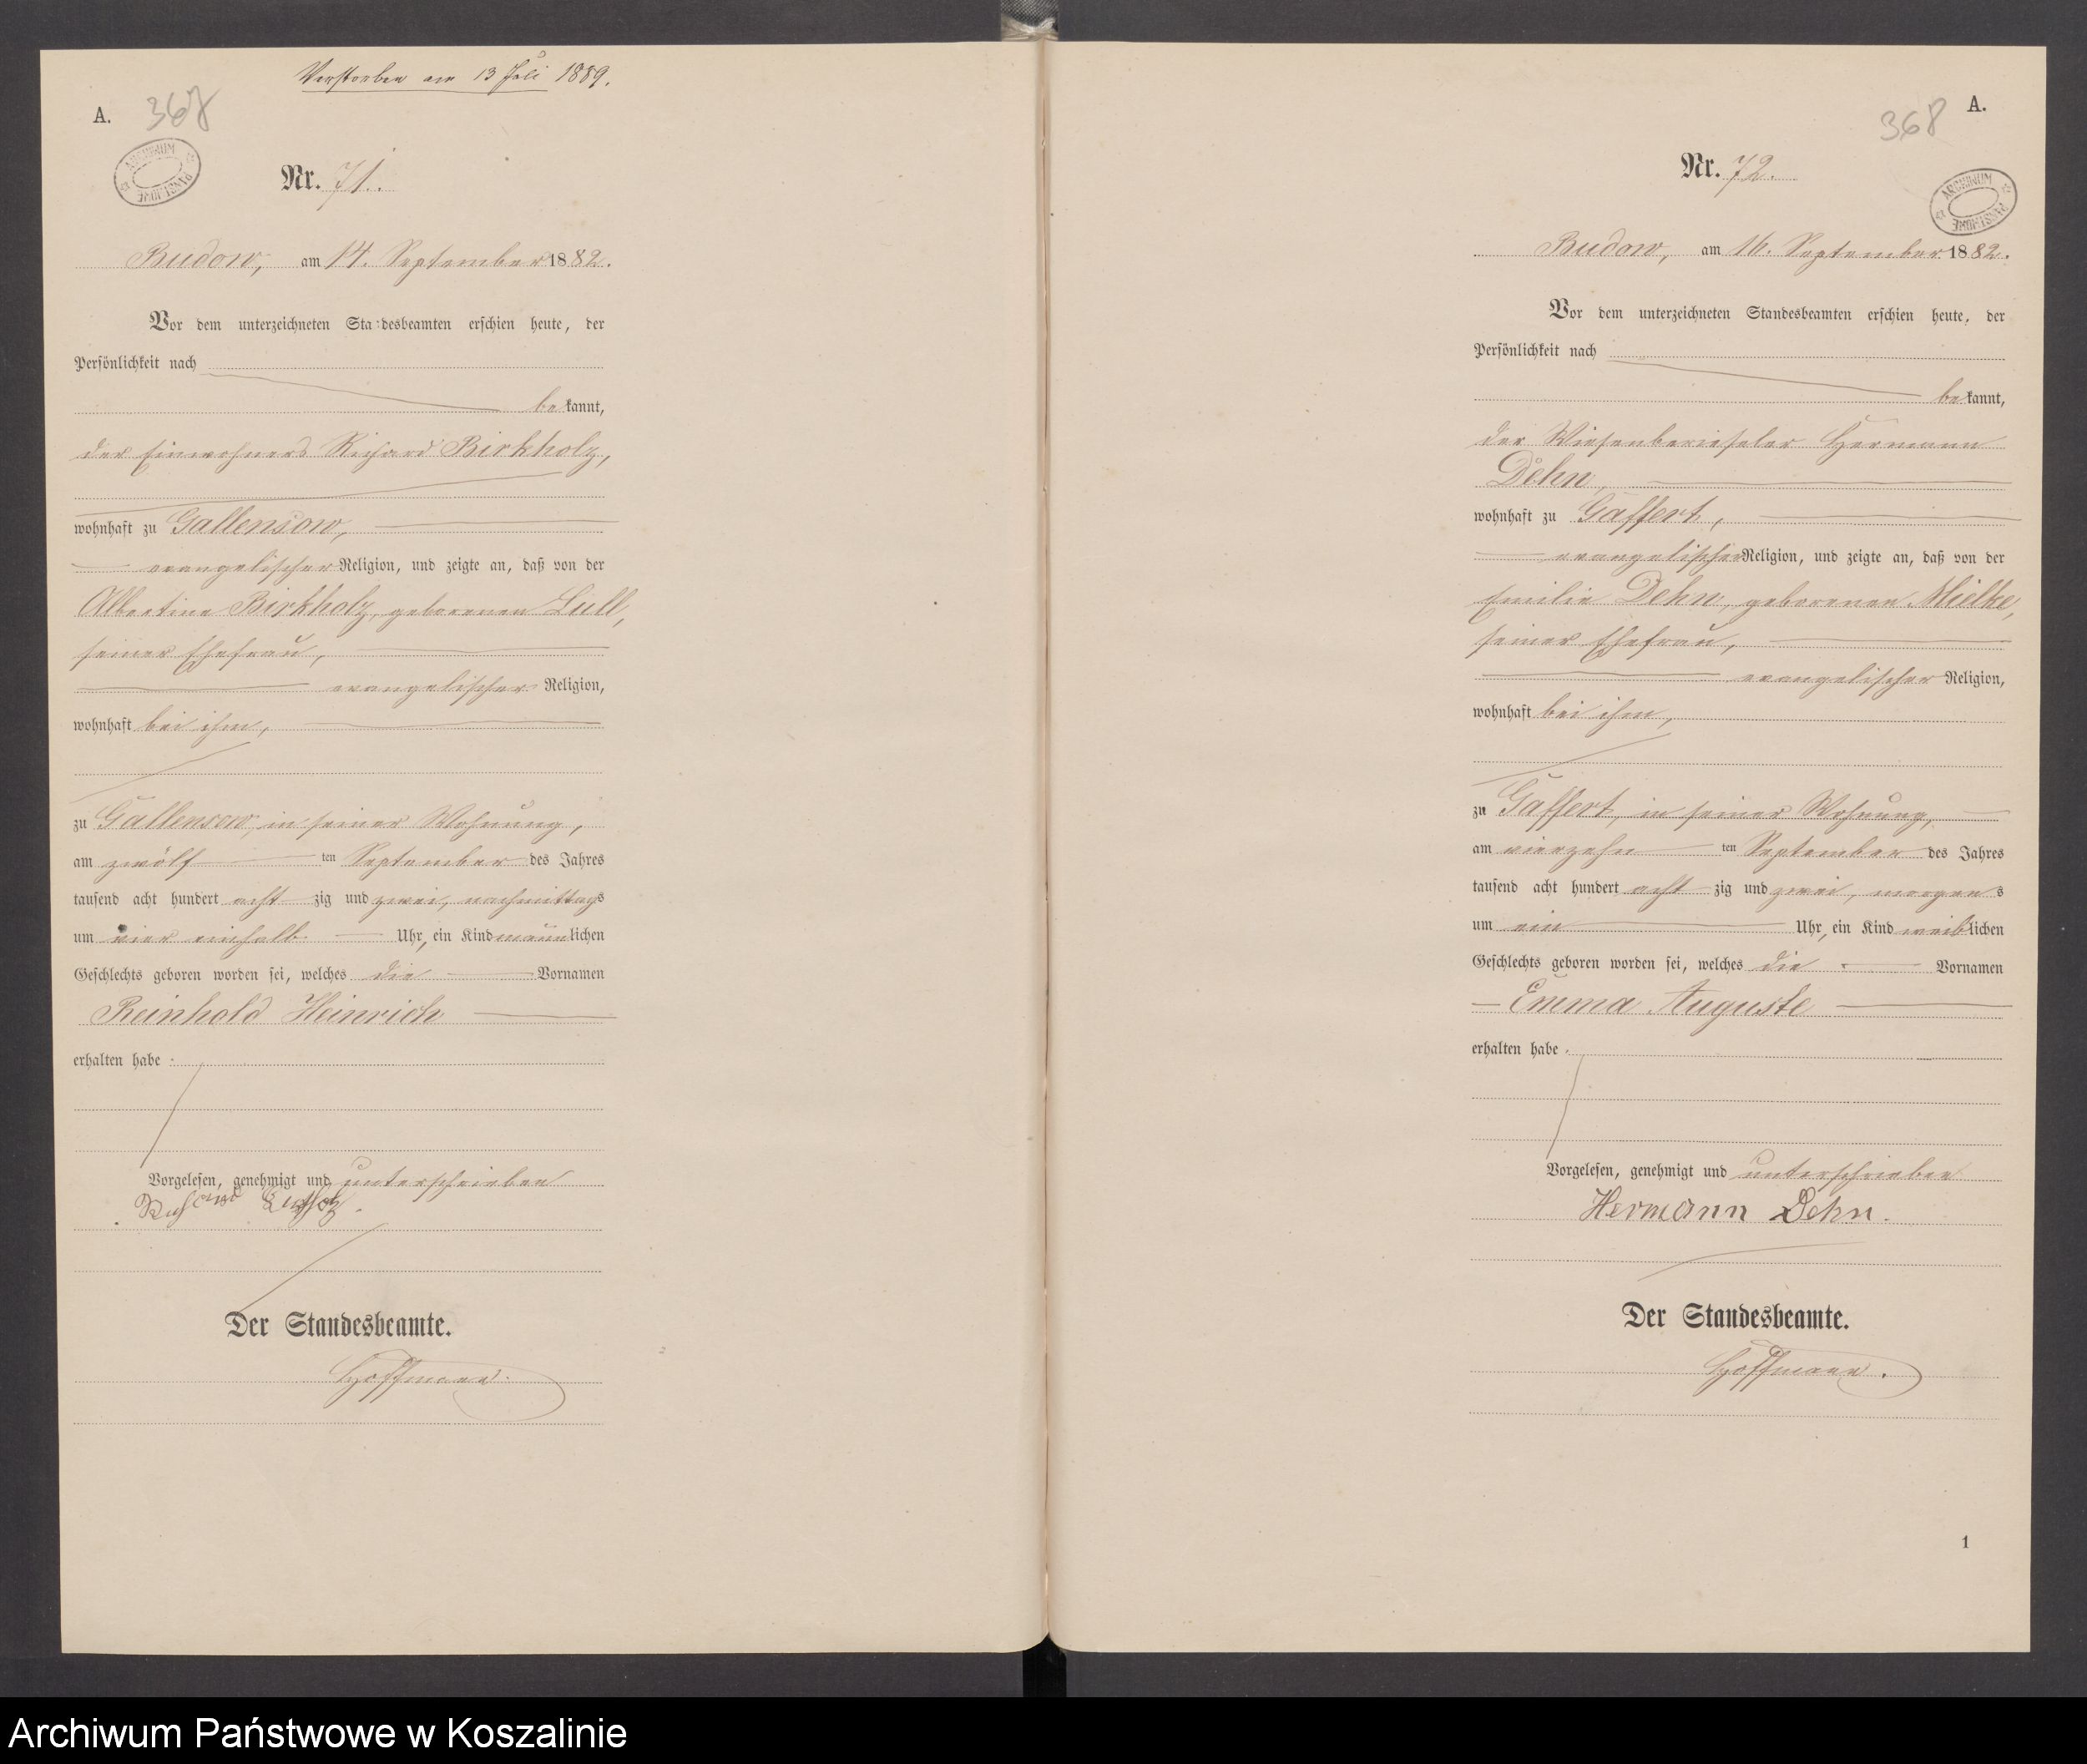 Verstorben am 13 Juli 1889.
A.
367
ARCHIWUM PAŃSTWOWE
Nr. 71.
Budow, am 14. September 1882.
Vor dem unterzeichneten Sta:desbeamten erschien heute, der
Persönlichkeit nach
bekannt,
der Einwohner Richard Birkholz,
wohnhaft zu Gallensow,
evangelischer Religion, und zeigte an, daß von der
Albertine Birkholz, geborenen Lüll,
seiner Ehefrau,
evangelischer Religion,
wohnhaft bei ihm,
zu Gallensow, in seiner Wohnung,
am zwölf ten September des Jahres
tausend acht hundert acht zig und zwei, nachmittags
um vier einhalb Uhr, ein Kind männlichen
Geschlechts geboren worden sei, welches die Vornamen
Reinhold Heinrich
erhalten habe.
Vorgelesen, genehmigt und unterschrieben
Richard Birkholz.
Der Standesbeamte.
Hoffmann.
A.
368
ARCHIWUM PAŃSTWOWE
Nr. 72.
Budow, am 16. September 1882.
Vor dem unterzeichneten Standesbeamten erschien heute, der
Persönlichkeit nach
bekannt,
der Wiesenberieseler Hermann
Dehn,
wohnhaft zu Gaffert,
evangelischer Religion, und zeigte an, daß von der
Emilie Dehn, geborenen Mielke,
seiner Ehefrau,
evangelischer Religion,
wohnhaft bei ihm,
zu Gaffert, in seiner Wohnung,
am vierzehn ten September des Jahres
tausend acht hundert acht zig und zwei, morgens
um ein Uhr, ein Kind weiblichen
Geschlechts geboren worden sei, welches die Vornamen
Emma Auguste
erhalten habe.
Vorgelesen, genehmigt und unterschrieben
Hermann Dehn.
Der Standesbeamte.
Hoffmann.
1
Archiwum Państwowe w Koszalinie